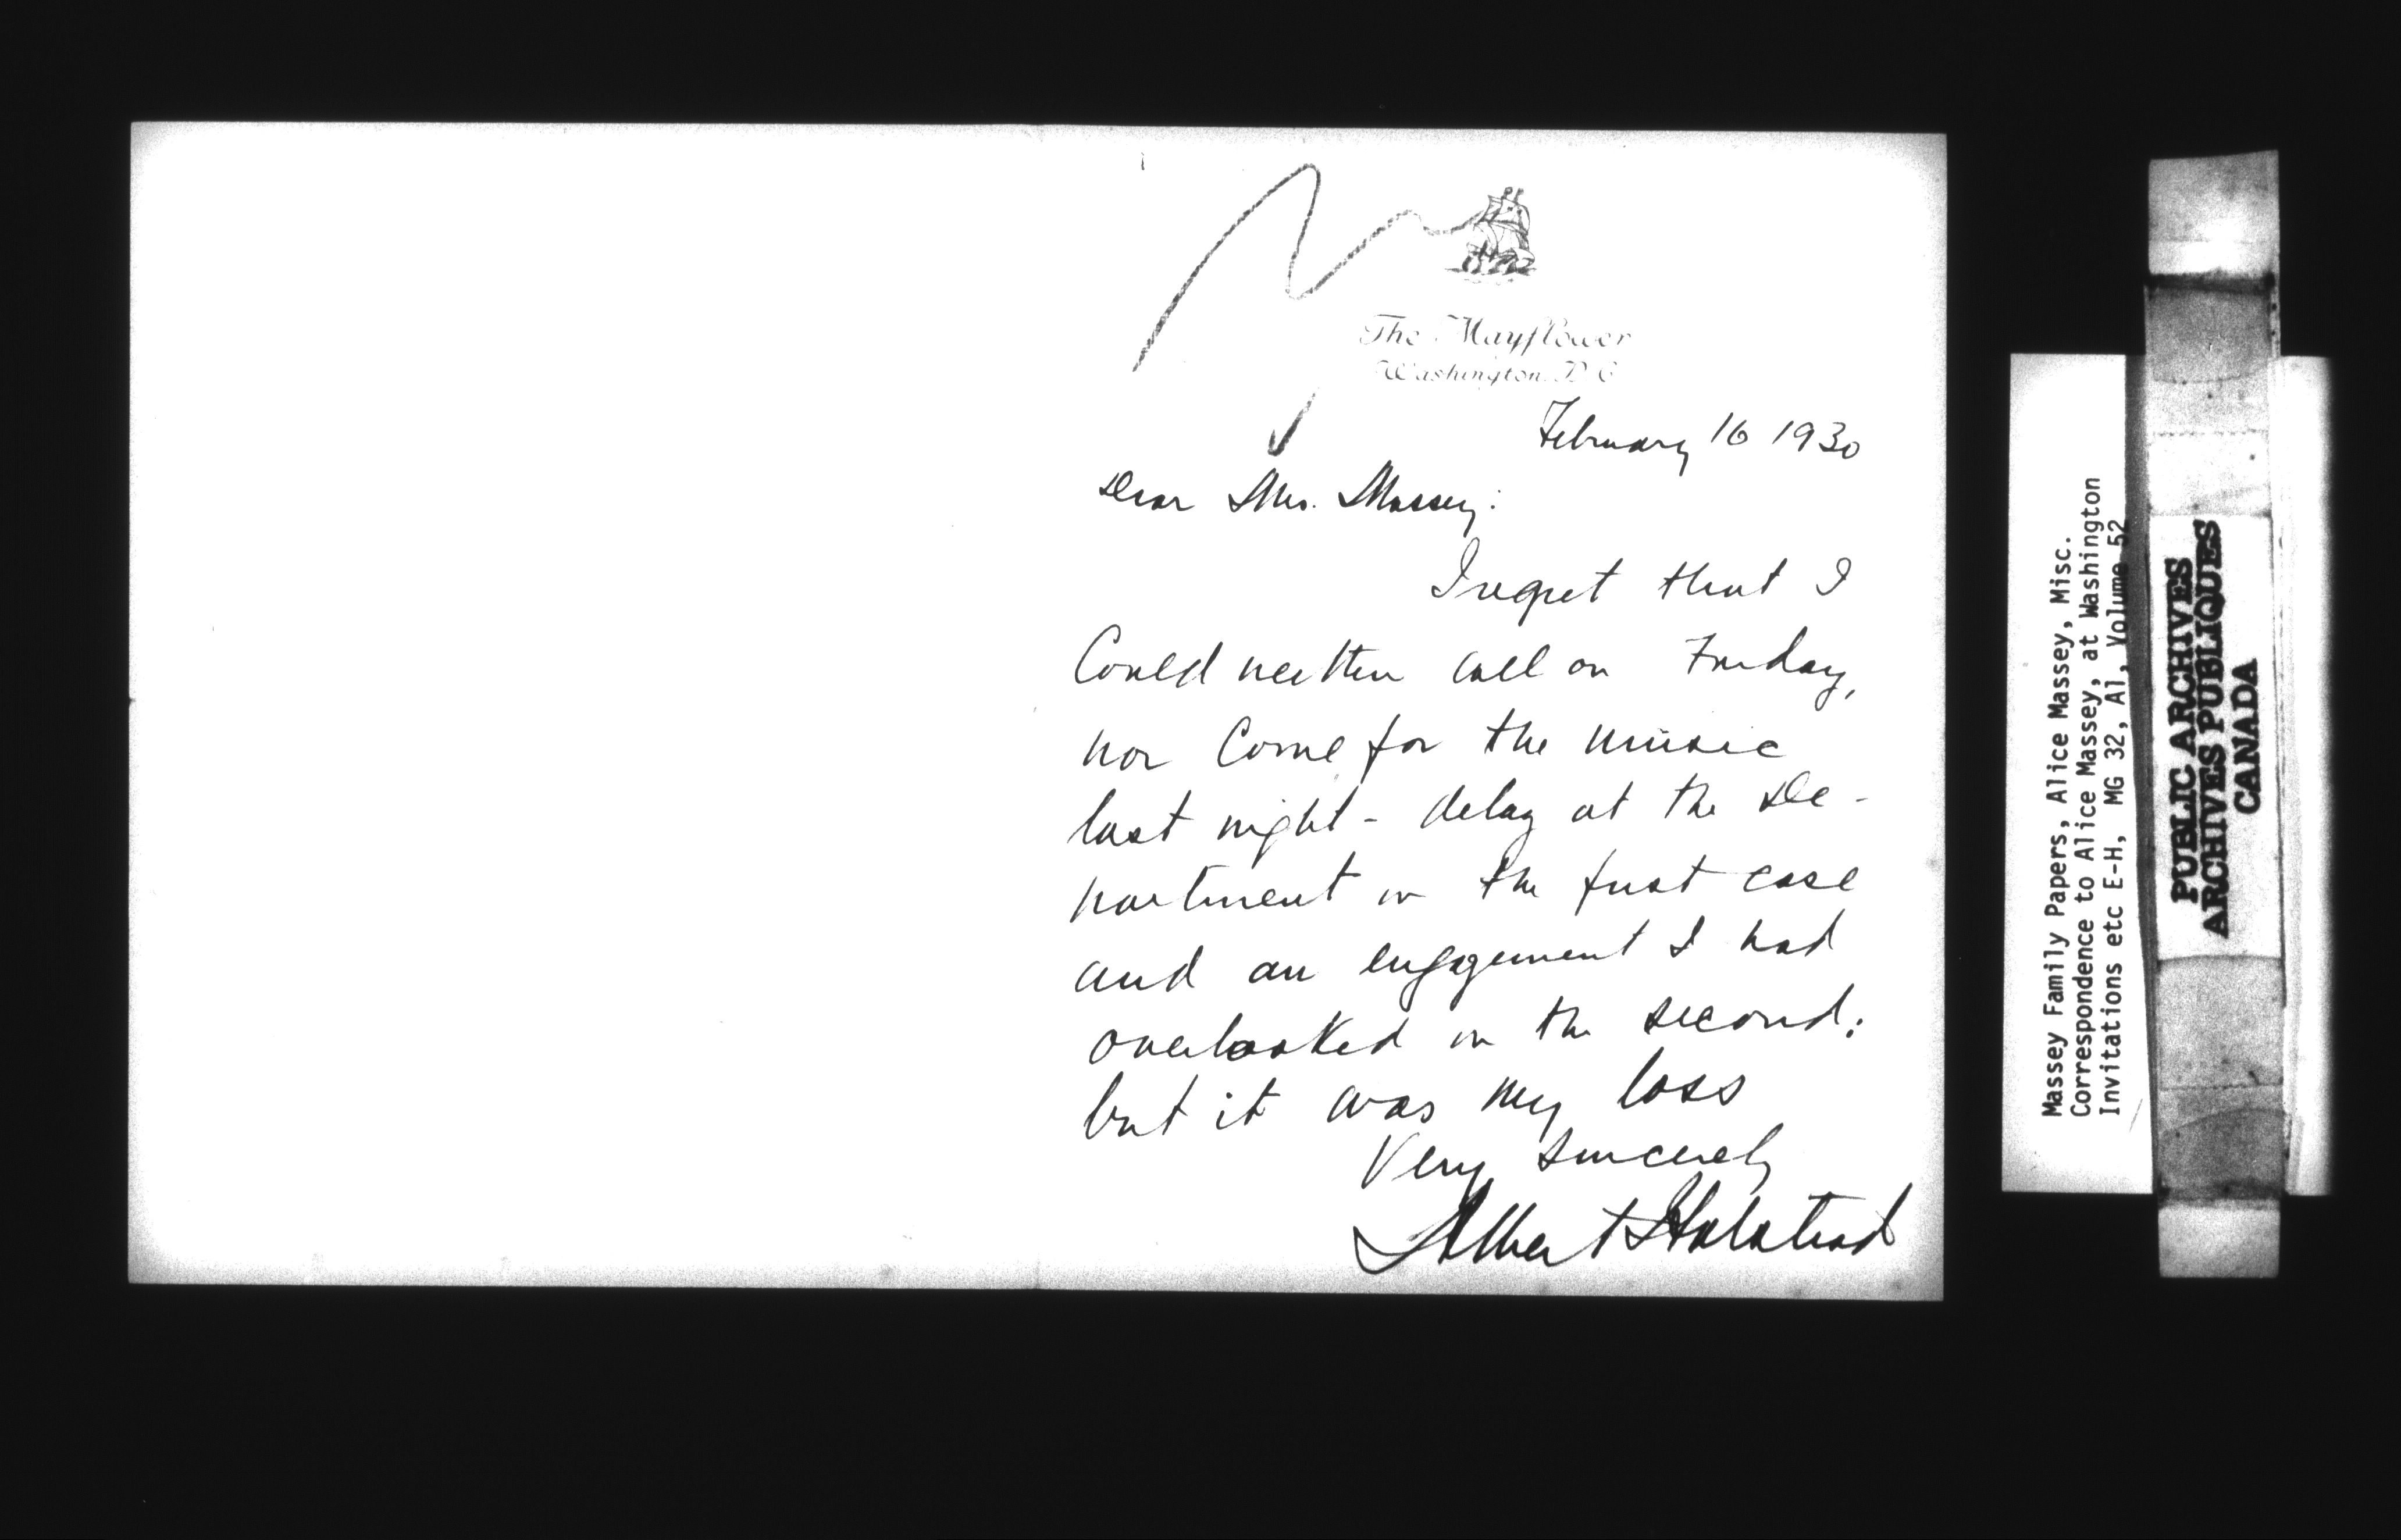 The Mayflower
Washington, D C
February 16 1930
Dear Mrs. Massey:
I regret that I
Could neither call on Friday,
nor Come for the music
last night - delay at the De-
partment in the first case
and an engagement I had
overlooked in the second:
but it was my loss
Very sincerely
Albert Halstead
Massey Family Papers, Alice Massey, Misc.
Correspondence to Alice Massey, at Washington
Invitations etc E-H, MG 32, A1, Volume 52
PUBLIC ARCHIVES
ARCHIVES PUBLIQUES
CANADA